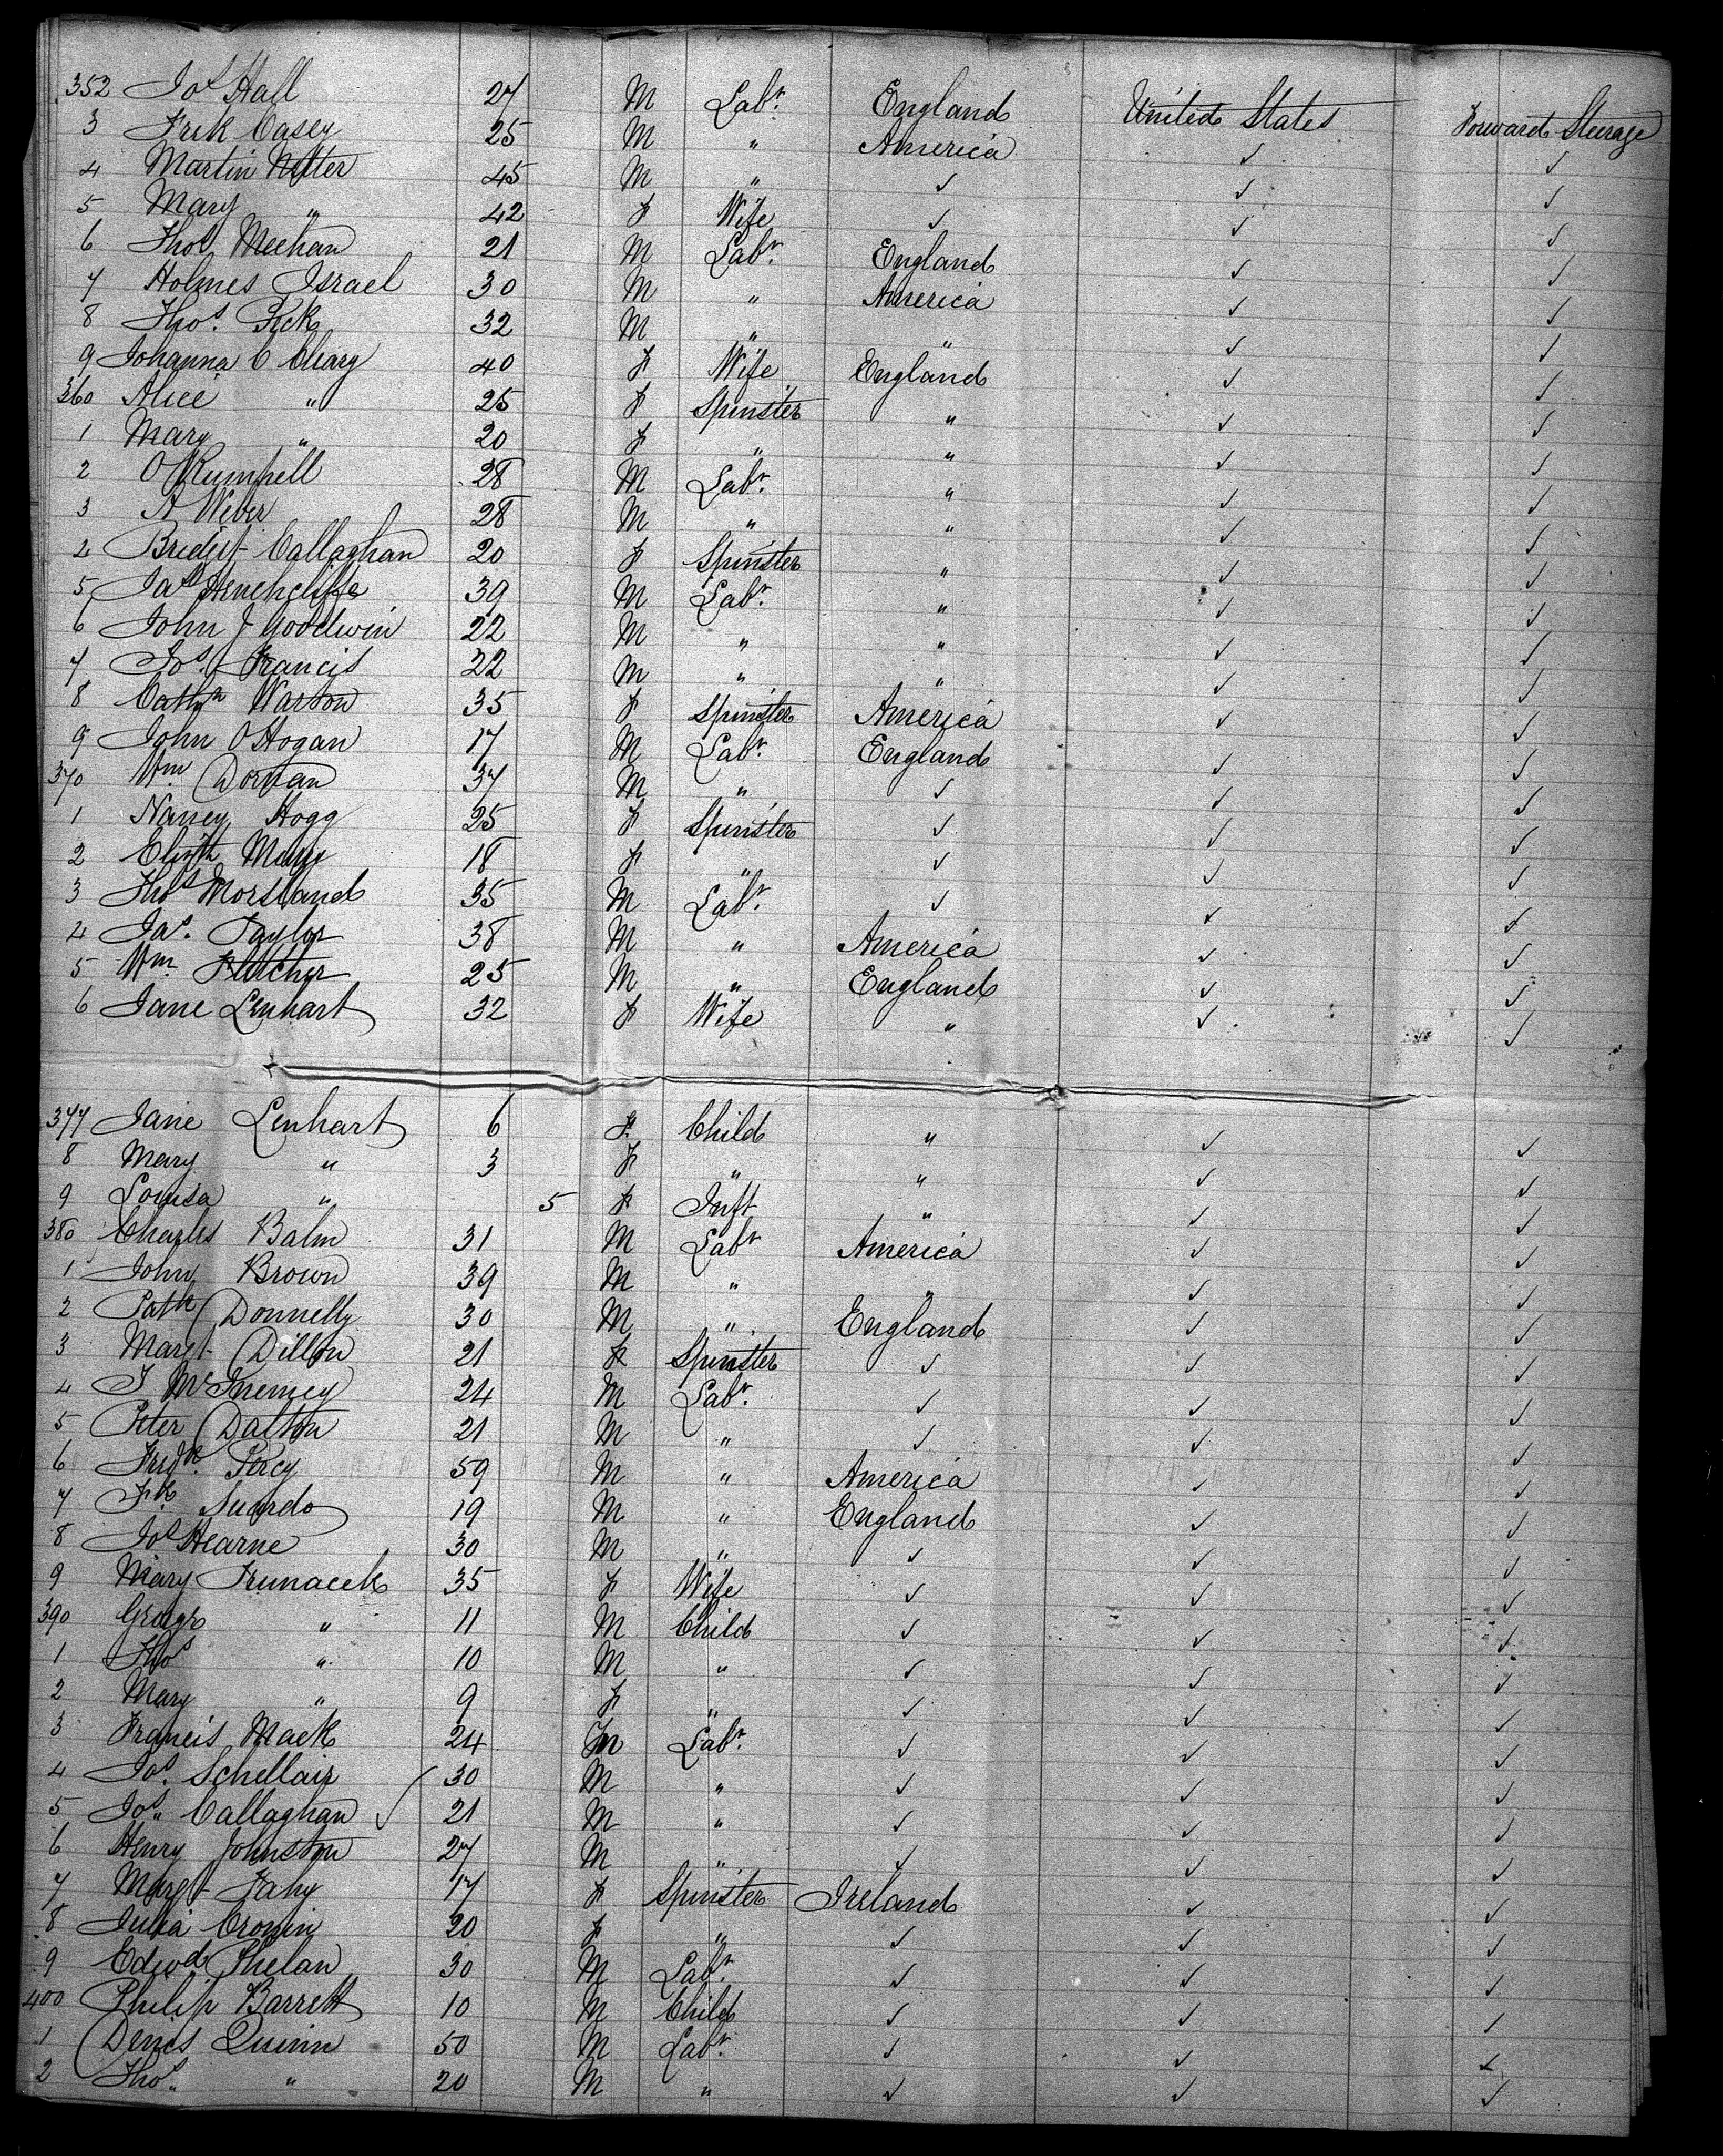 352 Jos Hall 27 M Labr. England United States Forward Steerage
3 Frik Casey 25 M " America ✓ ✓
4 Martin 45 M " ✓ ✓ ✓
5 Mary " 42 F Wife ✓ ✓ ✓
6 Thos Meehan 21 M Labr. England ✓ ✓
7 Holmes Israel 30 M " America ✓ ✓
8 Thos. Peck 32 M " " ✓ ✓
9 Johanna O Cleary 40 F Wife England ✓ ✓
360 Alice " 25 F Spinster " ✓ ✓
1 Mary " 20 F " " ✓ ✓
2 O Rumpell 28 M Labr. " ✓ ✓
3 A Weber 28 M " " ✓ ✓
4 Bridget Callaghan 20 F Spinster " ✓ ✓
5 Jas Henchcliffe 39 M Labr. " ✓ ✓
6 John J Goodwin 22 M " " ✓ ✓
7 Jos. Francis 22 M " " ✓ ✓
8 Cathn Warson 35 F Spinster America ✓ ✓
9 John O Hogan 17 M Labr. England ✓ ✓
370 Wm Dorvan 37 M " ✓ ✓ ✓
1 Nancy Hogg 25 F Spinster ✓ ✓ ✓
2 Elizth 18 F " ✓ ✓ ✓
3 Thos Morsland 35 M Labr. ✓ ✓ ✓
4 Jas. Taylor 38 M " America ✓ ✓
5 Wm. Fletcher 25 M " England ✓ ✓
6 Jane Lenhart 32 F Wife " ✓ ✓
377 Jane Lenhart 6 F. Child " ✓ ✓
8 Mary " 3 F " " ✓ ✓
9 Louisa " 5 F Inft " ✓ ✓
380 Charles Balm 31 M Labr America ✓ ✓
1 John Brown 39 M " " ✓ ✓
2 Patk Donnelly 30 M " England ✓ ✓
3 Margt Dillon 21 F Spinster ✓ ✓ ✓
4 J McInerney 24 M Labr. ✓ ✓ ✓
5 Peter Dalton 21 M " ✓ ✓ ✓
6 Fredk. Percy 59 M " America ✓ ✓
7 Fk. Suardo 19 M " England ✓ ✓
8 Jos Hearne 30 M " ✓ ✓ ✓
9 Mary Frunacek 35 F Wife ✓ ✓ ✓
390 George " 11 M Child ✓ ✓ ✓
1 Thos " 10 M " ✓ ✓ ✓
2 Mary " 9 F " ✓ ✓ ✓
3 Francis Mack 24 M Labr. ✓ ✓ ✓
4 Jos. Schellair 30 M " ✓ ✓ ✓
5 Jos. Callaghan ✓ 21 M " ✓ ✓ ✓
6 Henry Johnston 27 M " ✓ ✓ ✓
7 Margt Fahy 17 F Spinster Ireland ✓ ✓
8 Julia Cronin 20 F " ✓ ✓ ✓
9 Edwd Phelan 30 M Labr. ✓ ✓ ✓
400 Philip Barrett 10 M Child ✓ ✓ ✓
1 Denis Quinn 50 M Labr. ✓ ✓ ✓
2 Thos. " 20 M " ✓ ✓ ✓